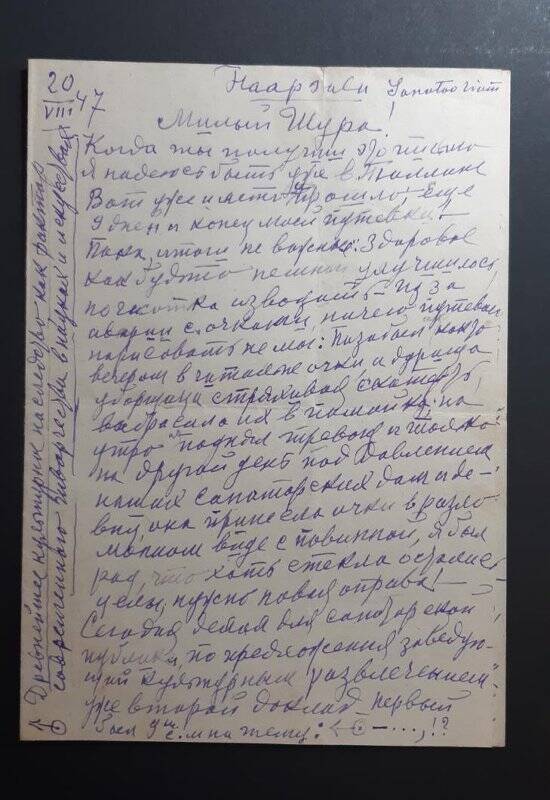 20
VIII 47
Санатоorium
Милый Шура!
Когда ты получишь это письмо
Я надеюсь быть уже в Таллине
Вот уже и лето прошло, еще
9 дней и конец моей путевки!
Пока, итоги не важные: Здоровье
как будто немного улучшилось
но чесотка изводит. Из за
аварии с очками, ничего путевого
нарисовать не мог: Позабыл как то
вечером в читальне очки и
уборщица стряхивая скатерть,
выбросила их в помойку. на
утро поднял тревогу и только
на другой день под давлением
наших санаторских дам
она принесла очки в разло
манном виде с повинной, я был
рад, что хоть стекла остались
целы, пусть новая оправа!
Сегодня делаю для санаторской
публики, по предложению заведую-
щий культурным "развлечением"
уже второй доклад, первый
был 9 на тему:
Древнейшее культурное наследство как фактор
современного творчества в науках и искусствах